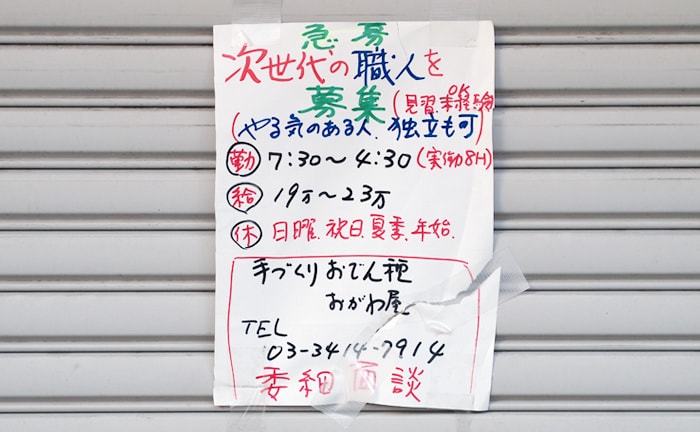 急募
次世代の職人を
募集(見習.未経験OK
(やる気のある人.独立も可)
勤 7:30〜4:30(実働8H)
給 19万〜23万
休 日曜.祝日.夏季.年始.
手づくりおでん種
おがわ屋
TEL
03-3414-7914
委細面談